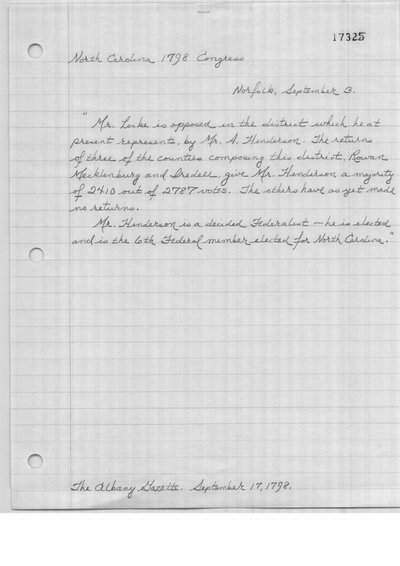 17325
North Carolina 1798 Congress
Norfolk, September 3.
"Mr. Locke is opposed in the district which he at
present represents, by Mr. A. Henderson. The returns
of three of the counties composing this district, Rowan,
Mecklenberg and Iredell, give Mr. Henderson a majority
of 2410 out of 2787 votes. The others have as yet made
no returns.
Mr. Henderson is a decided Federalist - he is elected
and is the 6th Federal member elected for North Carolina."
The Albany Gazette. September 17, 1798.